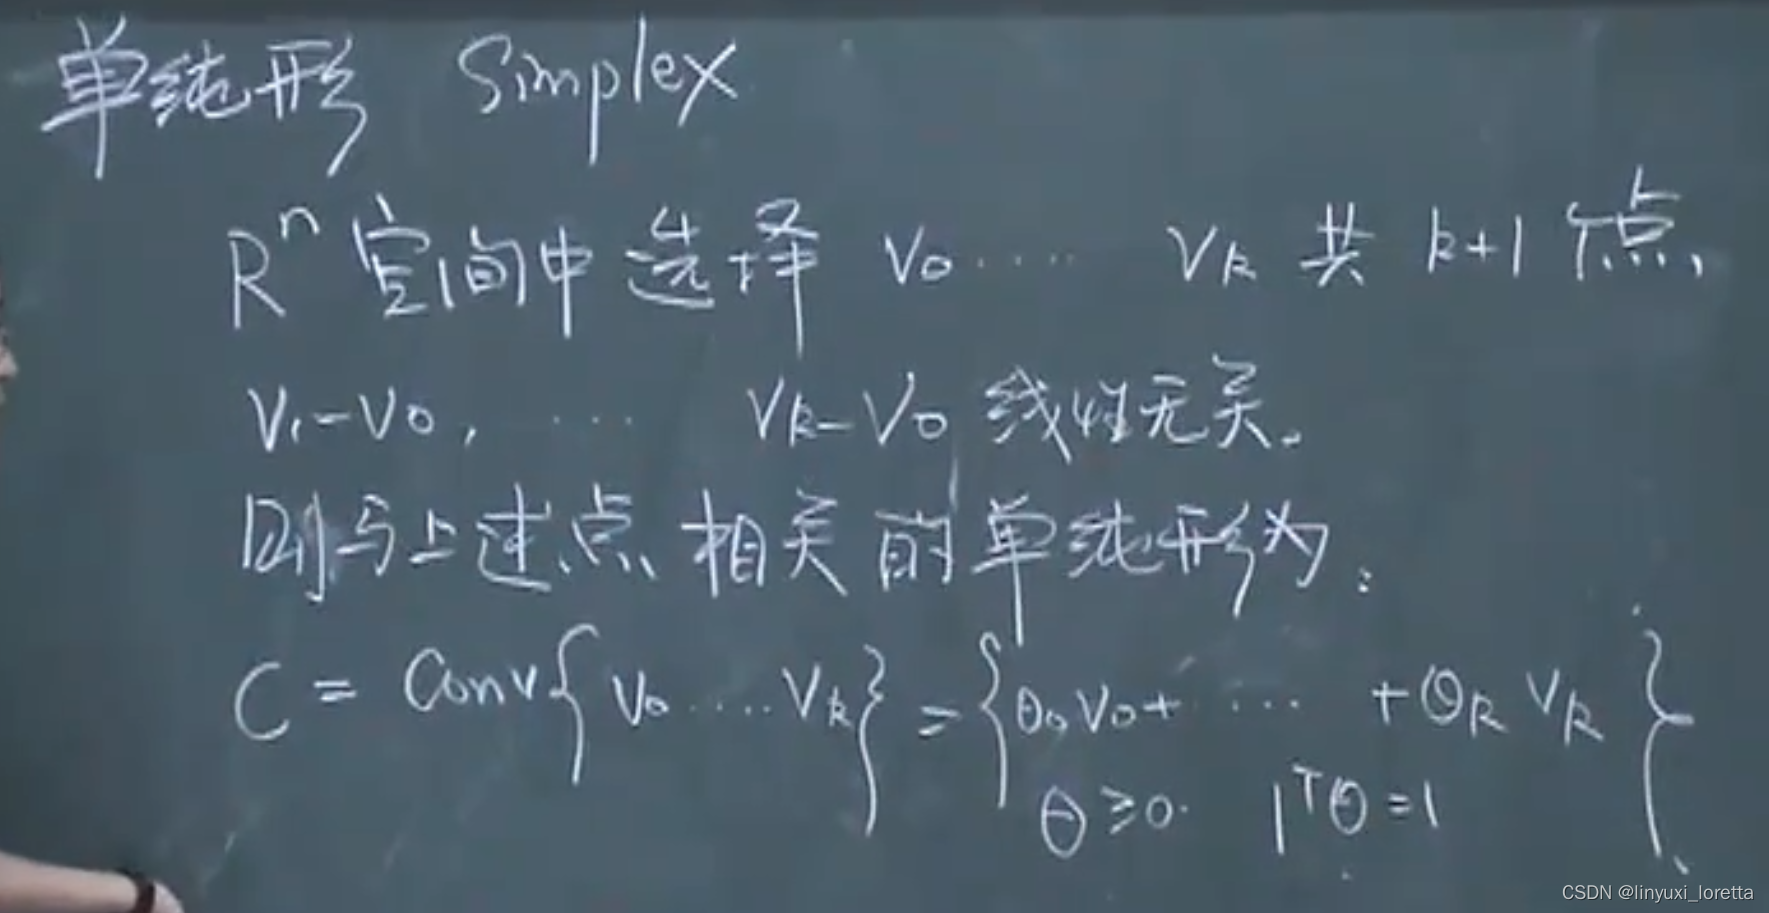 单纯形 Simplex
Rⁿ 空间中选择 v₀ ····· vₖ 共 k+1 个点,
v₁-v₀, ····· vₖ-v₀ 线性无关。
则与上述点相关的单纯形为:
C = Conv{v₀ ····· vₖ} = {θ₀v₀+ ··· +θₖvₖ
θ≥0. 1ᵀθ=1}
CSDN @linyuxi_loretta